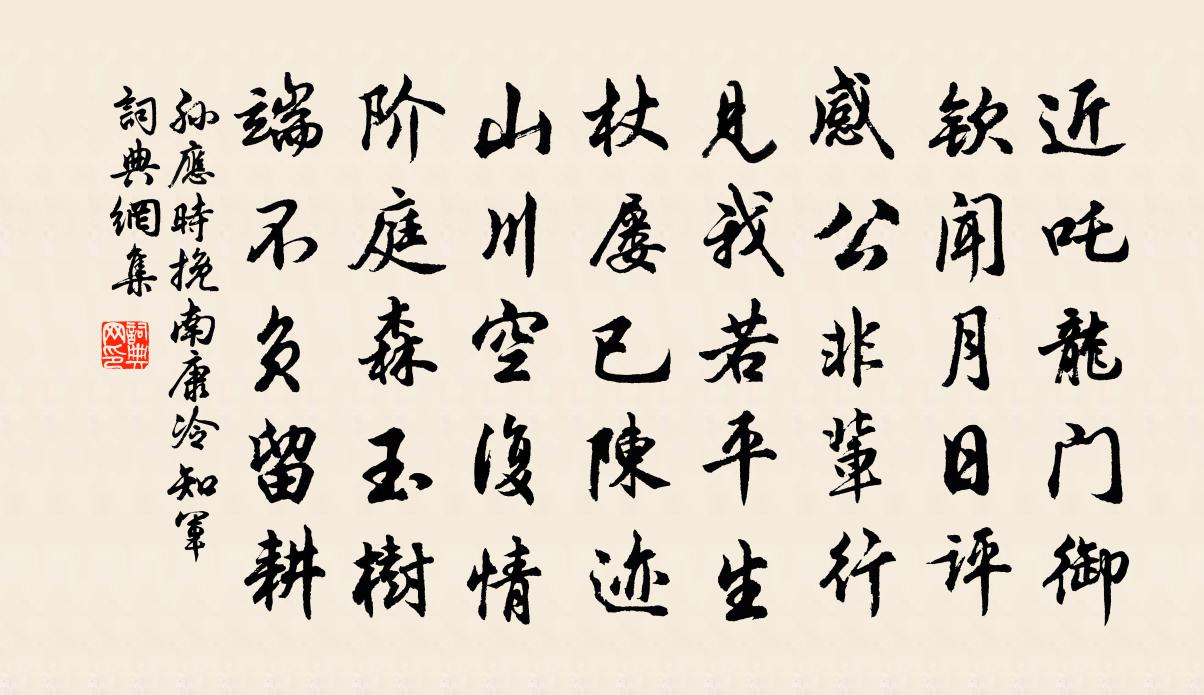 近吒龍门御
钦闻月日评
感公非輩行
見我若平生
杖屡已陳迹
山川空復情
阶庭森玉樹
端不负留耕
孙應時挽南康冷知軍
詞典網集
詞典网印